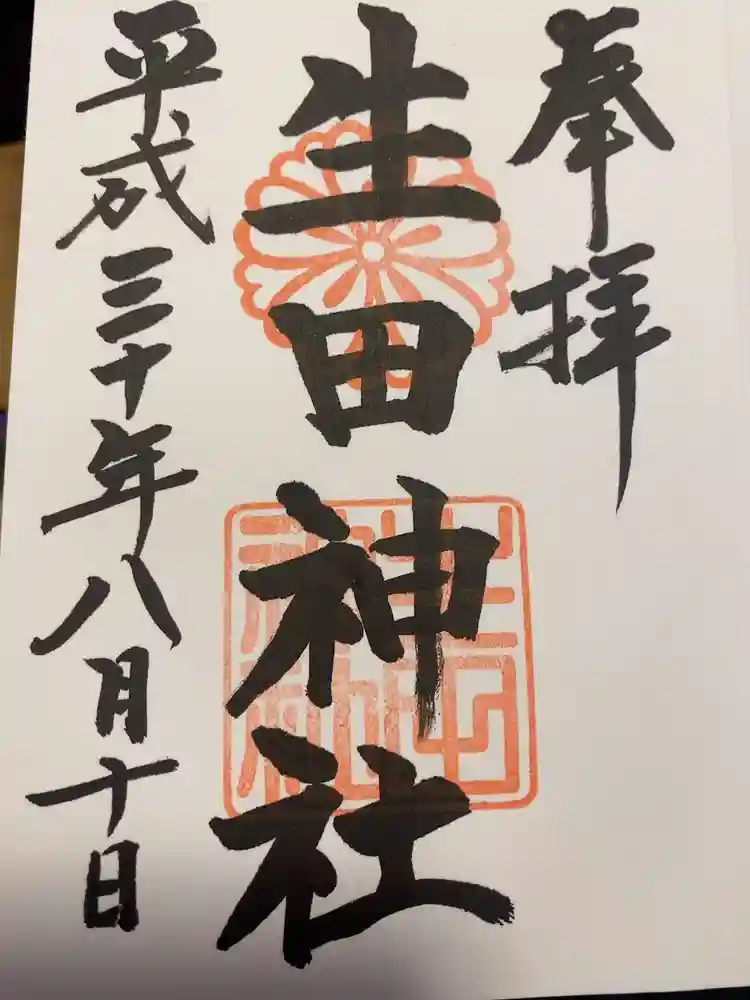 奉拝
生田神社
平成三十年八月十日